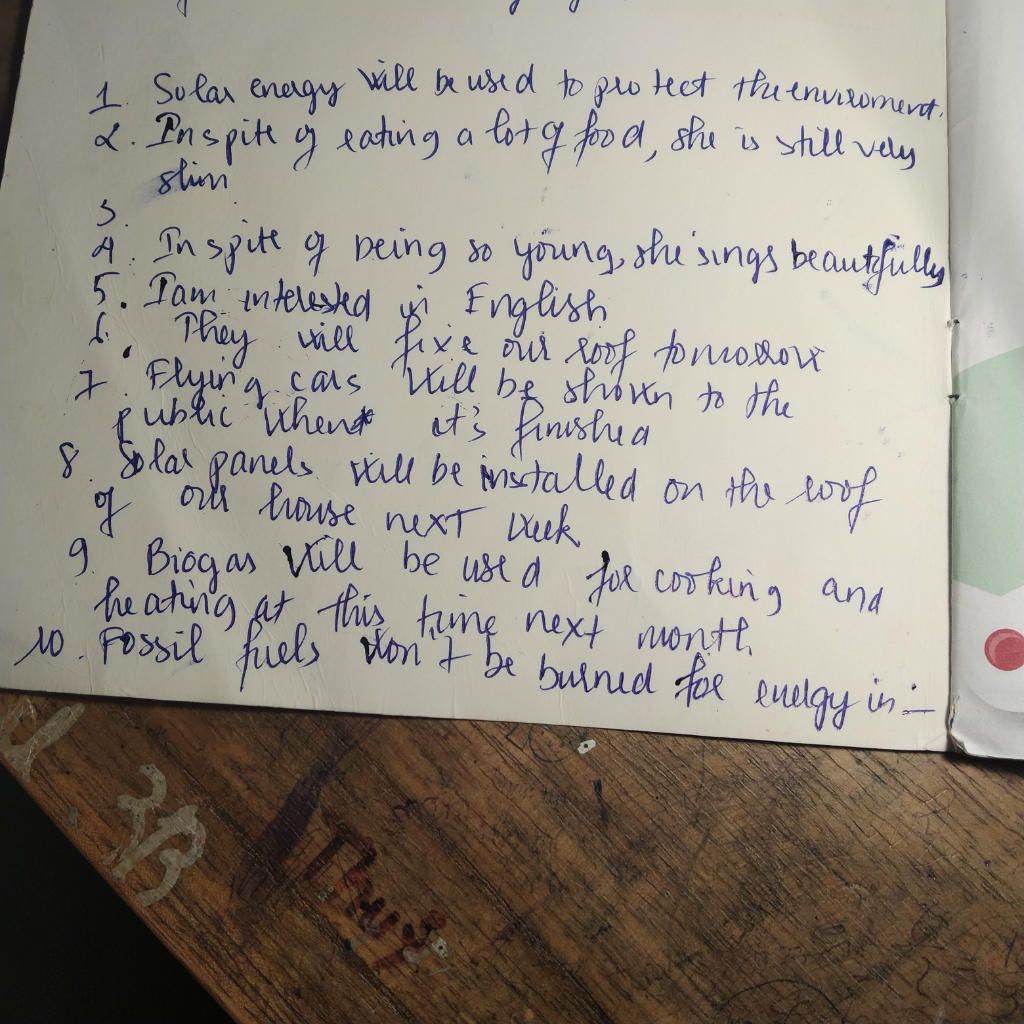 1. Solar energy will be used to protect the enviroment.
2. In spite of eating a lot of food, she is still very
slim
3.
4. In spite of being so young, she sings beautifully
5. I am interested in English
6. They will fixe our roof tomorrow
7. Flying cars will be shown to the
public when it's finished
8. Solar panels will be installed on the roof
of our house next week
9. Biogas will be used for cooking and
heating at this time next month.
10. Fossil fuels won't be burned for energy in